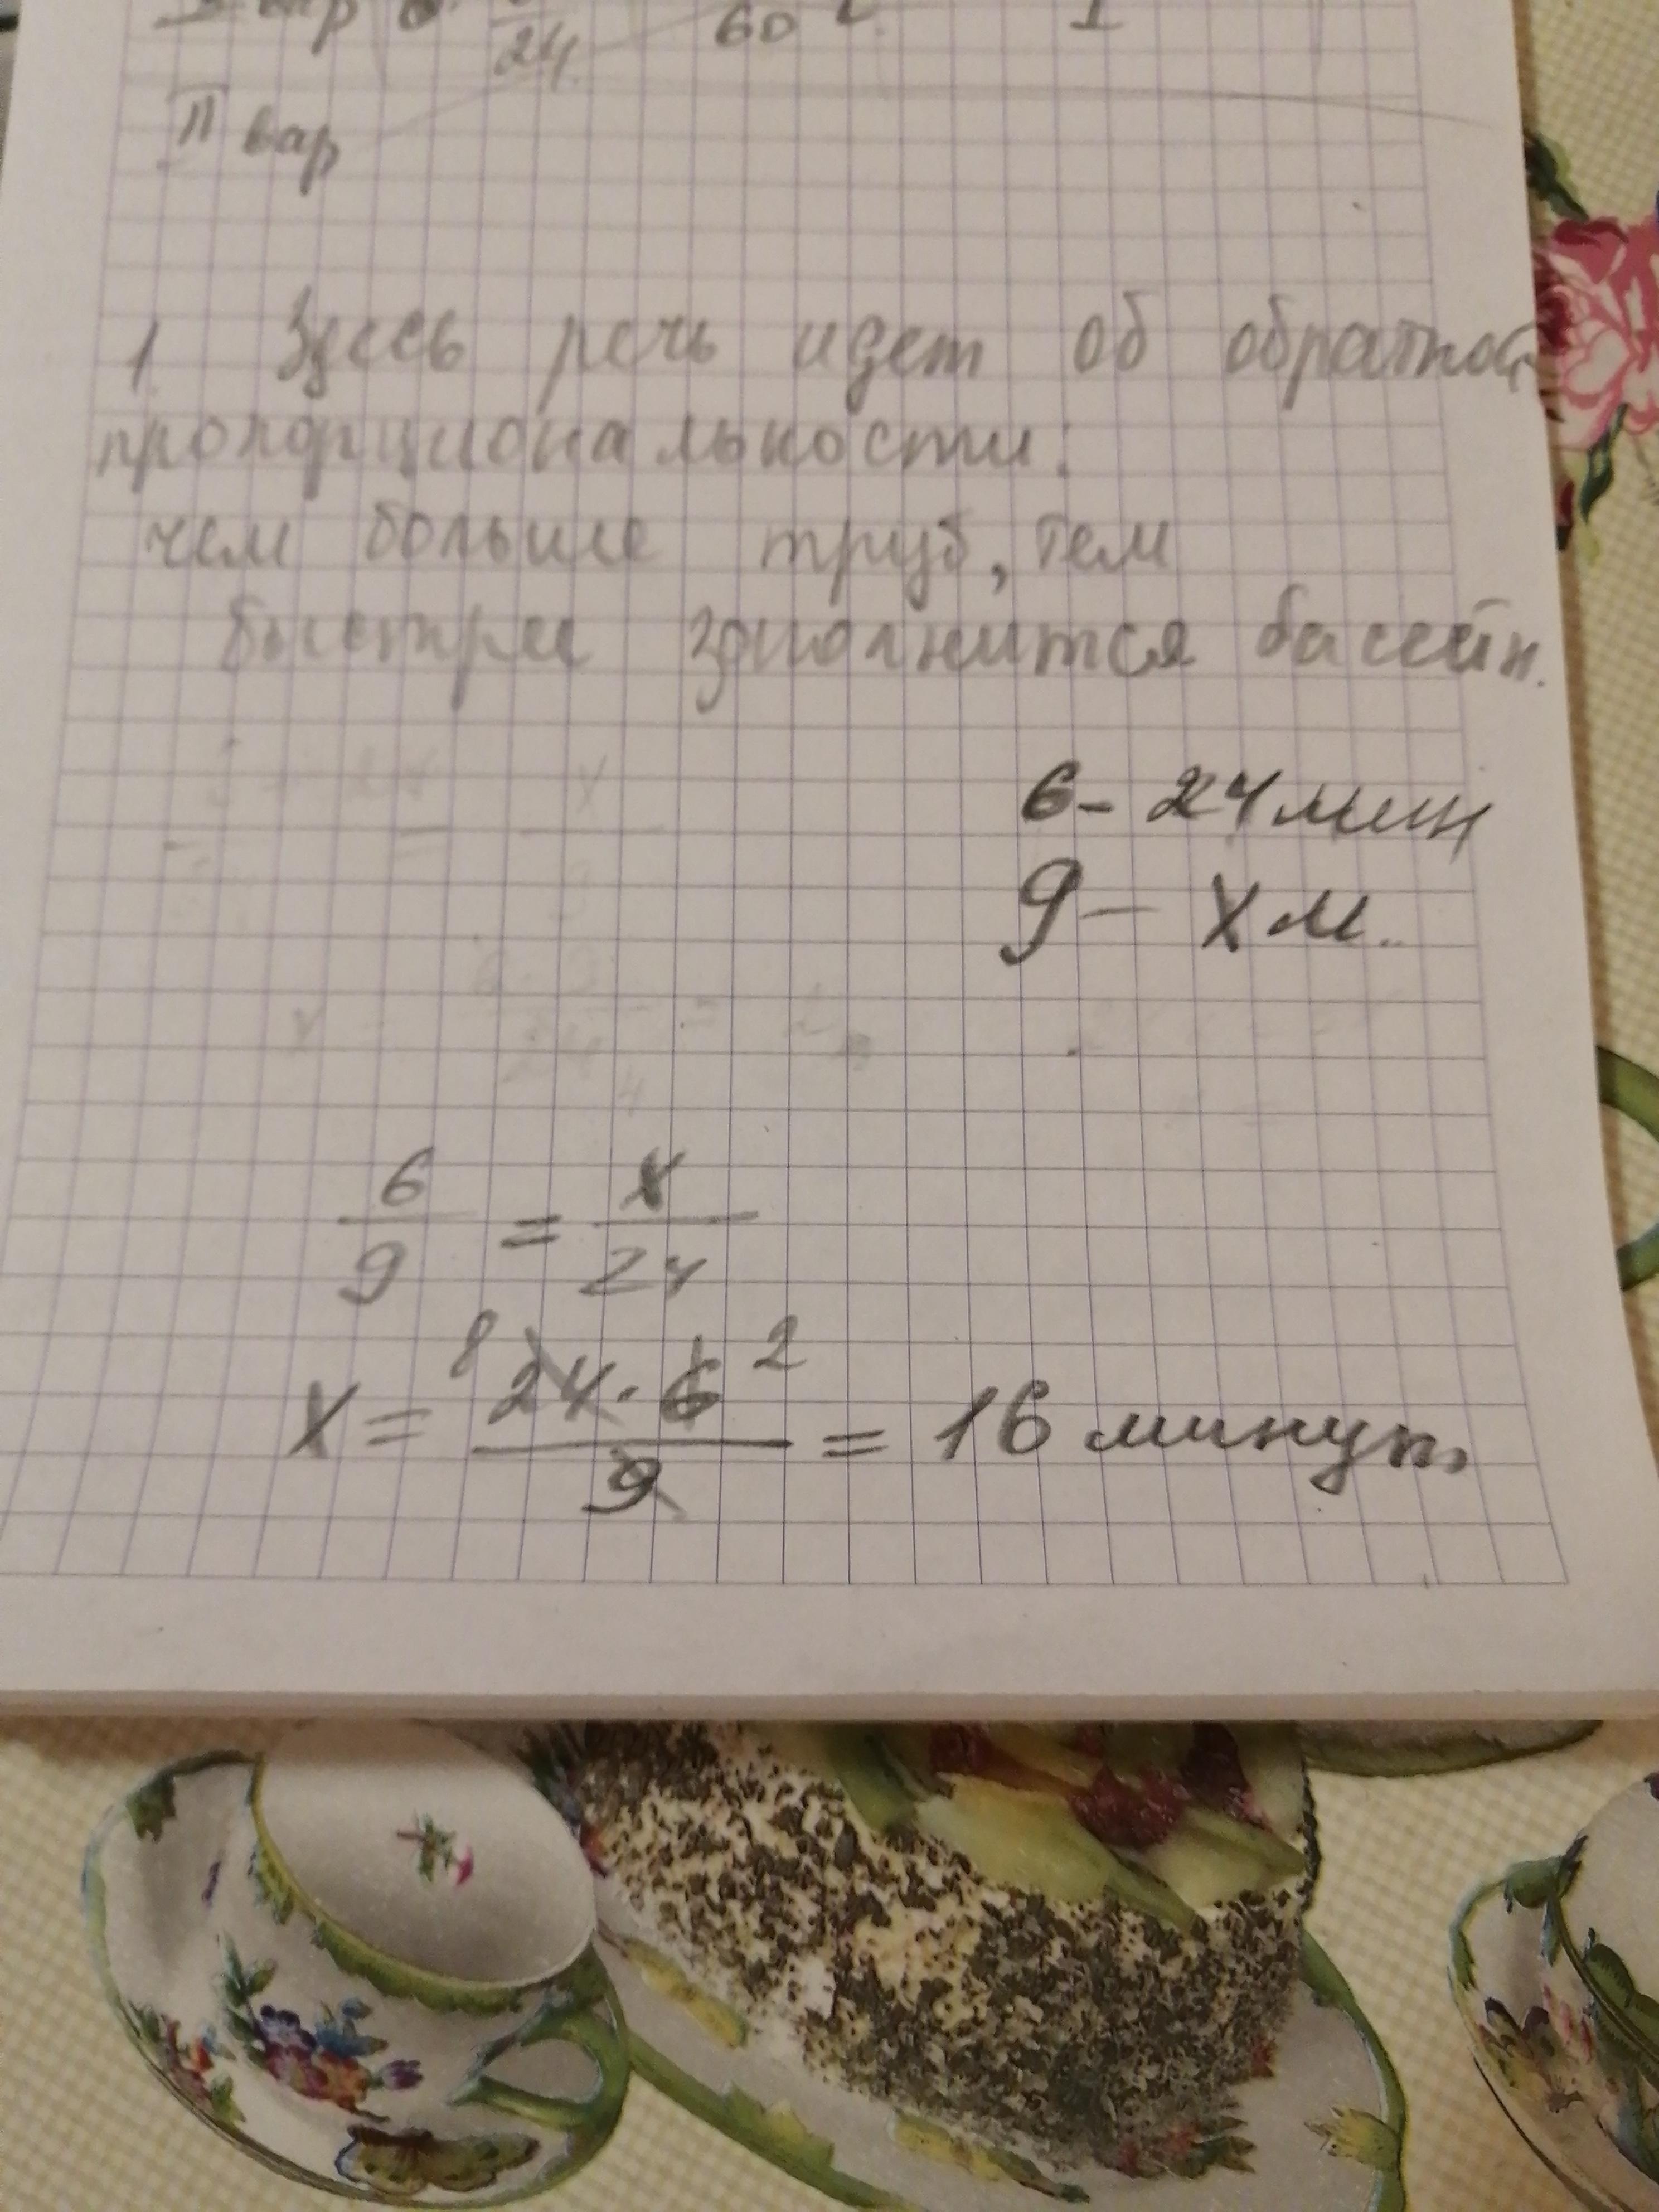 24 60
II вар
1. Здесь речь идет об обратной
пропорциональности:
чем больше труб, тем
быстрее заполнится бассейн.
6 - 24 мин
9 - X м.
6/9 = X/24
X = 8 24 · 6 2 / 9 = 16 минут.